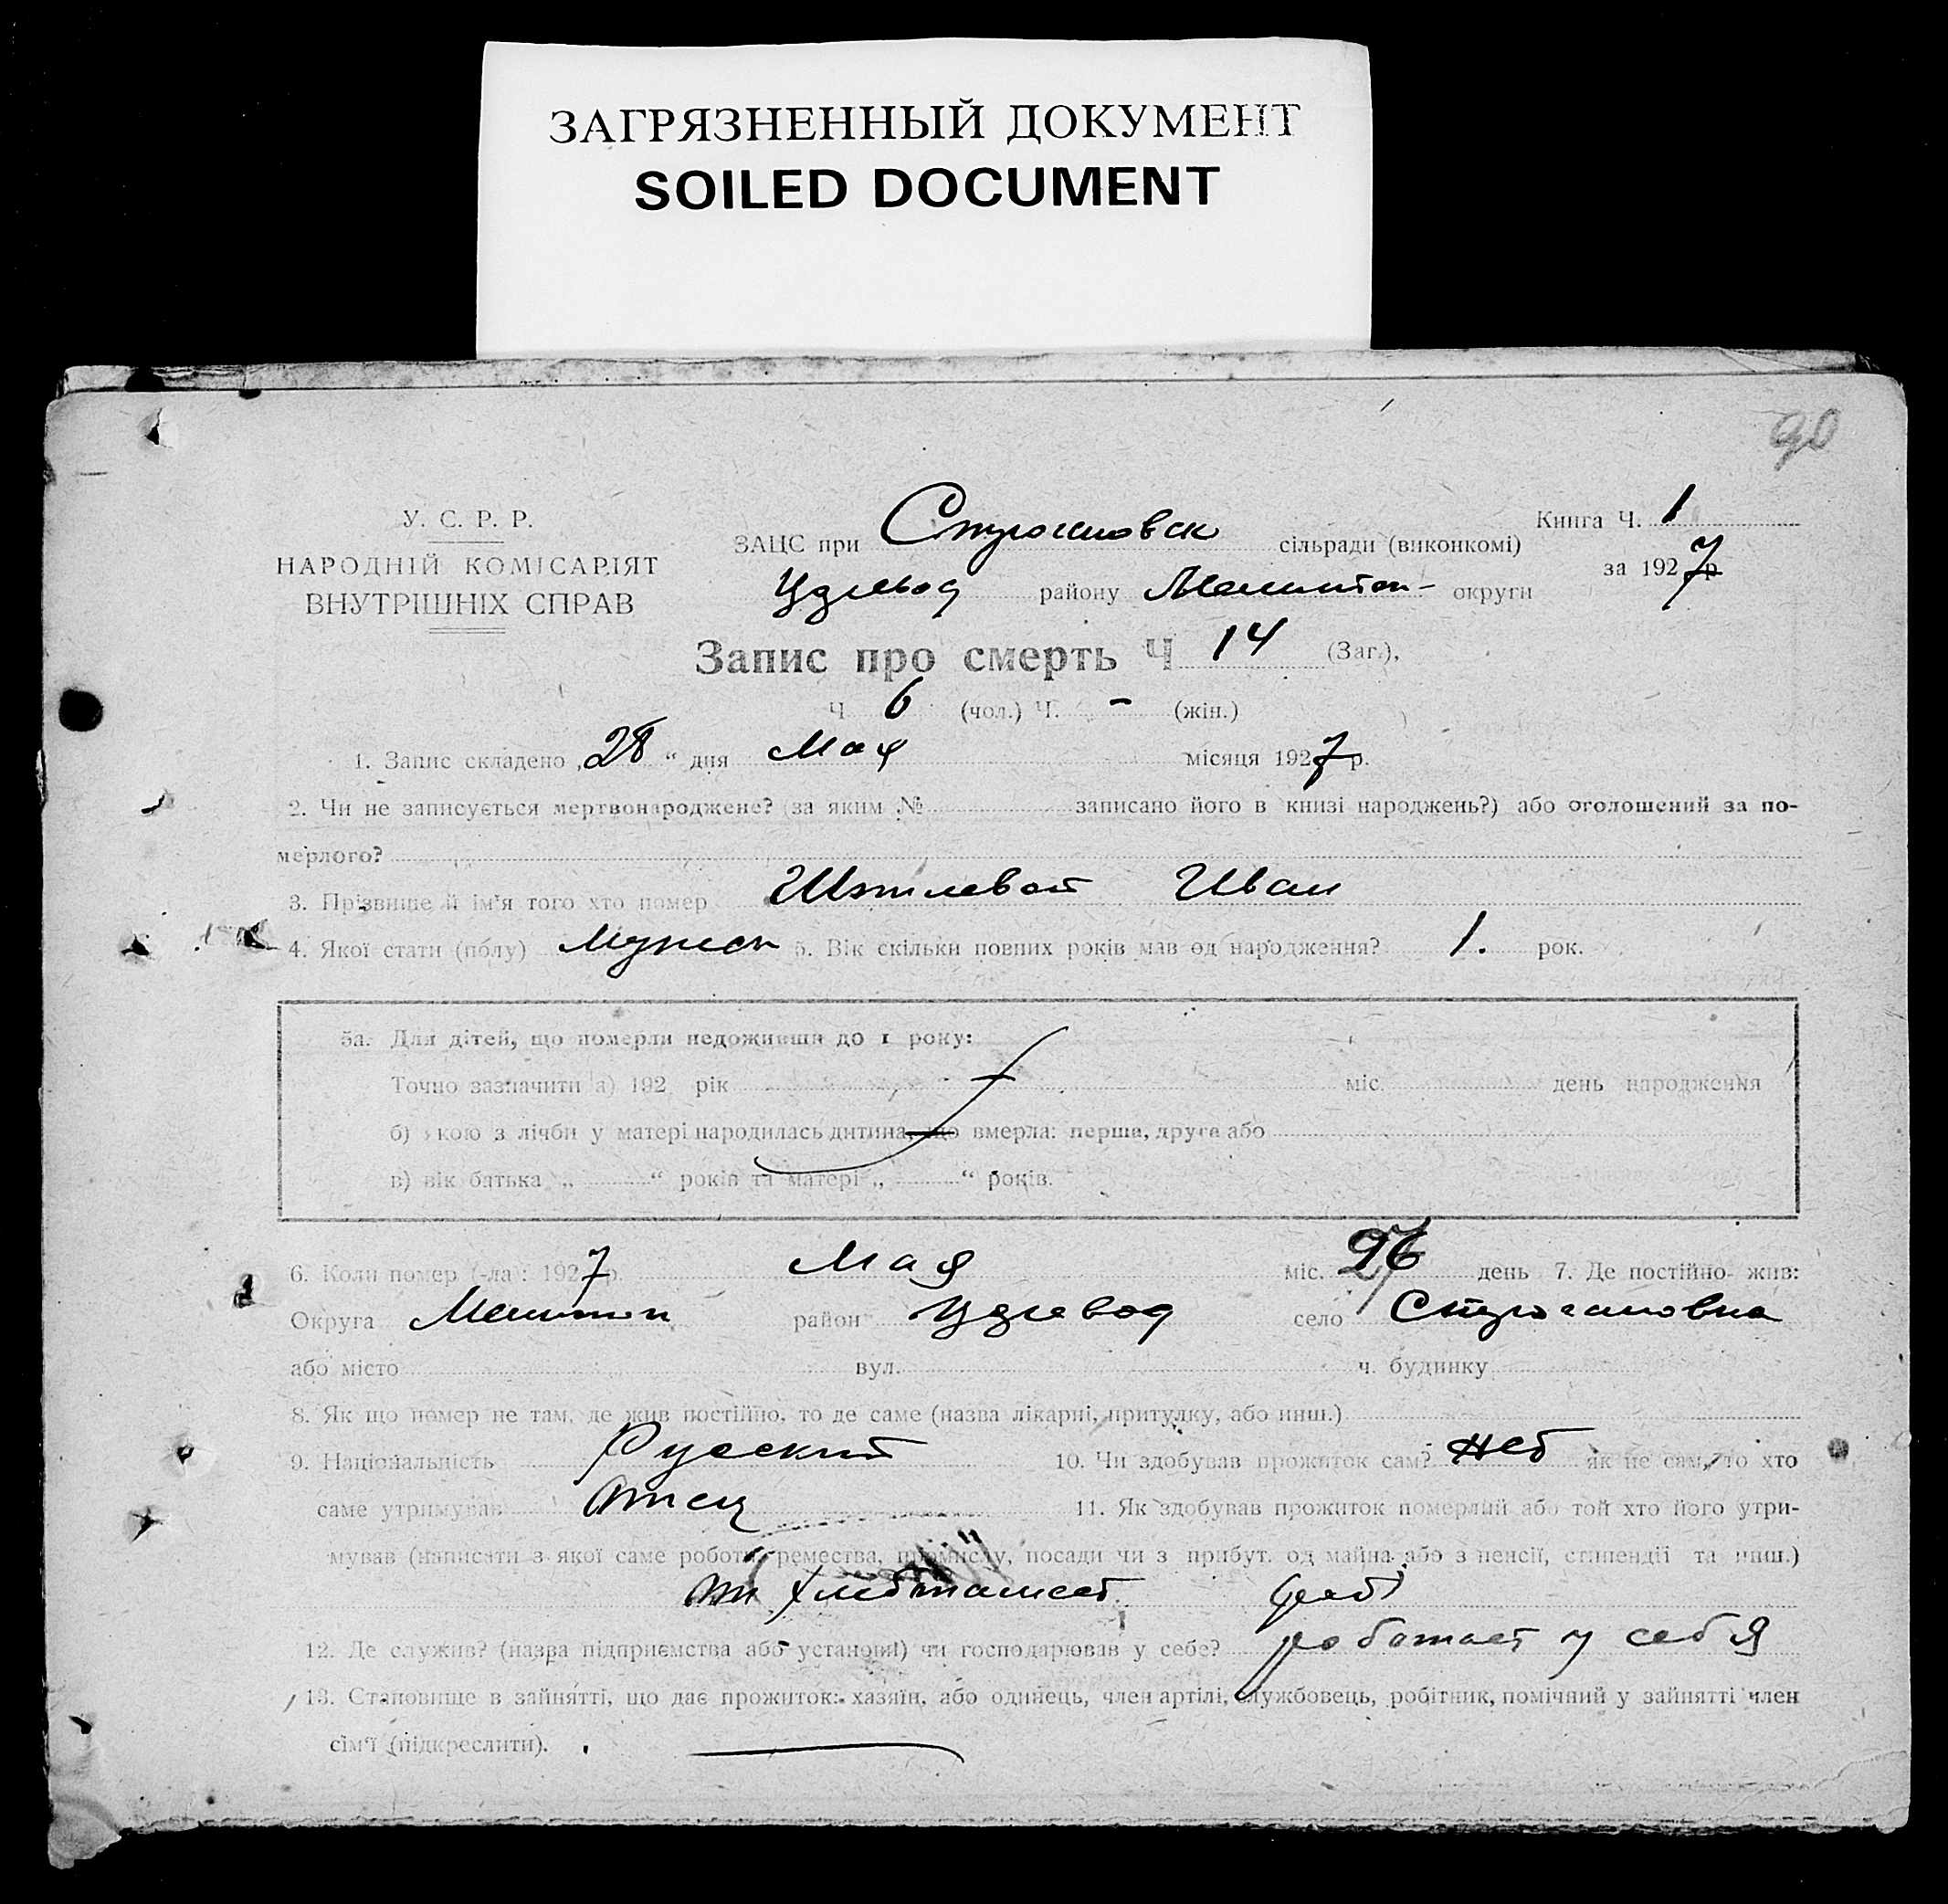 ЗАГРЯЗНЕННЫЙ ДОКУМЕНТ
SOILED DOCUMENT
90
У. С. Р. Р.
НАРОДНІЙ КОМІСАРІЯТ
ВНУТРІШНІХ СПРАВ
ЗАЦС при сільради (виконкомі)
району округи
Книга Ч. 1
за 1927 р
Запис про смерть Ч 14 (Заг.),
Ч 6 (чол.) Ч. - (жін.)
1. Запис складено „28“ дня Мая місяця 1927 р.
2. Чи не записується мертвонароджене? (за яким № записано його в книзі народжень?) або оголошений за по-
мерлого?
3. Прізвище й ім'я того хто помер Иван
4. Якої стати (полу) 5. Вік скільки повних років мав од народження? 1. рок.
5а. Для дітей, що померли недоживши до 1 року:
Точно зазначити а) 192 рік міс. день народження
б) якою з лічби у матері народилась дитина, що вмерла: перша, друга або
в) вік батька „ “ років та матері „ “ років.
6. Коли помер (-ла): 1927 р. Мая міс. 26 день 7. Де постійно жив:
Округа район село
або місто вул. ч. будинку
8. Як що помер не там, де жив постійно, то де саме (назва лікарні, притулку, або инш.)
9. Національність Русский 10. Чи здобував прожиток сам? нет як не сам, то хто
саме утримував Отец 11. Як здобував прожиток померлий або той хто його утри-
мував (написати з якої саме роботи, ремества, промислу, посади чи з прибут. од майна або з пенсії, стипендії та инш.)
12. Де служив? (назва підприємства або установи) чи господарював у себе? работает у себя
13. Становище в зайнятті, що дає прожиток: хазяїн, або одинець, член артілі, службовець, робітник, помічний у зайнятті член
сім'ї (підкреслити).